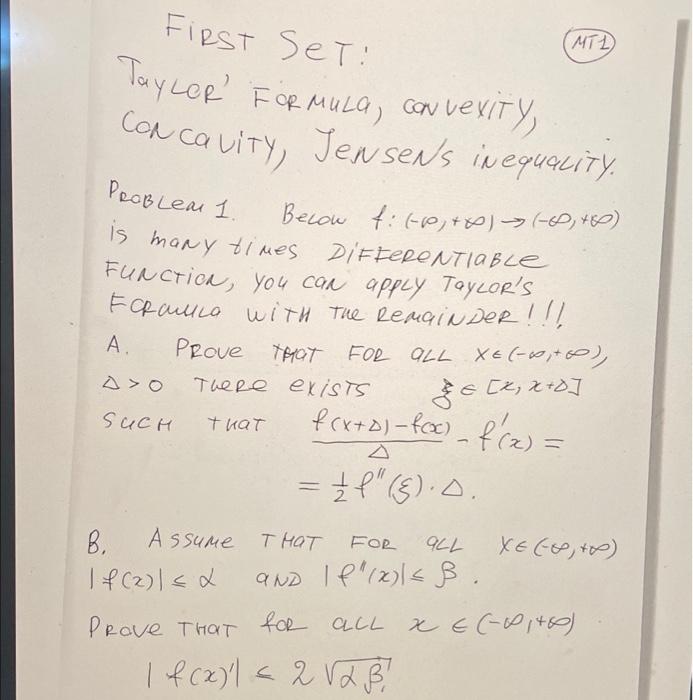 FIRST SET:
MT1
TAYLOR' FORMULA, CONVEXITY,
CONCAVITY, JENSEN'S INEQUALITY.
PROBLEM 1. BELOW f: (-∞, +∞) → (-∞, +∞)
is MANY times DIFFERENTIABLE
FUNCTION, you can apply TAYLOR'S
FORMULA WITH THE REMAINDER!!!
A. PROVE THAT FOR ALL x ∈ (-∞, +∞),
Δ > 0 THERE EXISTS ξ ∈ [x, x+Δ]
SUCH THAT (f(x+Δ) - f(x))/Δ - f'(x) =
= 1/2 f''(ξ) · Δ.
B. ASSUME THAT FOR ALL x ∈ (-∞, +∞)
|f(x)| ≤ α AND |f''(x)| ≤ β.
PROVE THAT for all x ∈ (-∞, +∞)
|f(x)'| ≤ 2 √αβ.